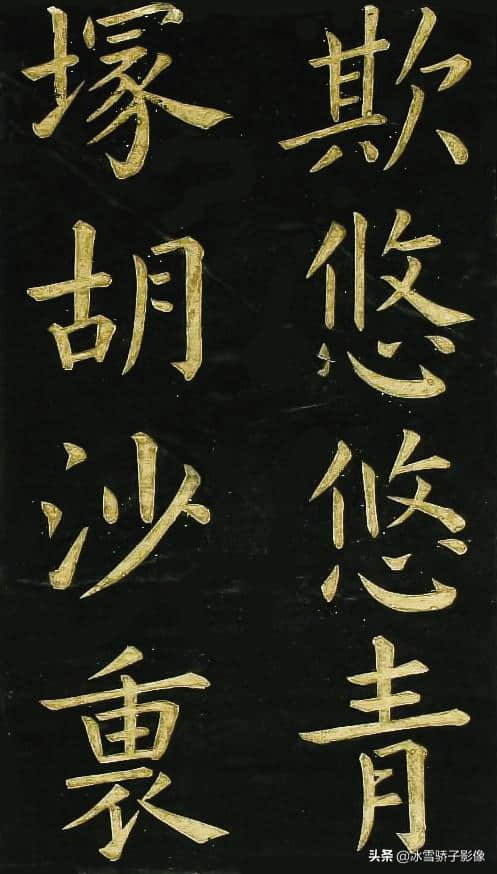 欺悠悠青
塚胡沙裏
头条 @冰雪骄子影像